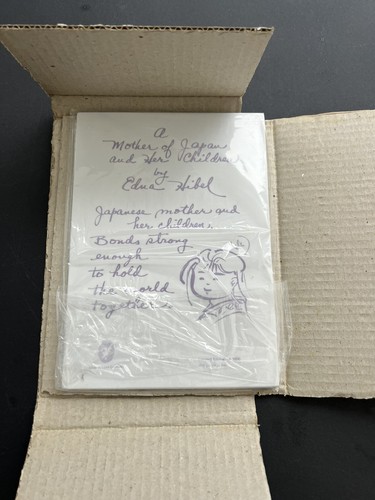 A
Mother of Japan
and Her Children
by
Edna Hibel
Japanese mother and
her children,
Bonds strong
enough
to hold
the world
together.